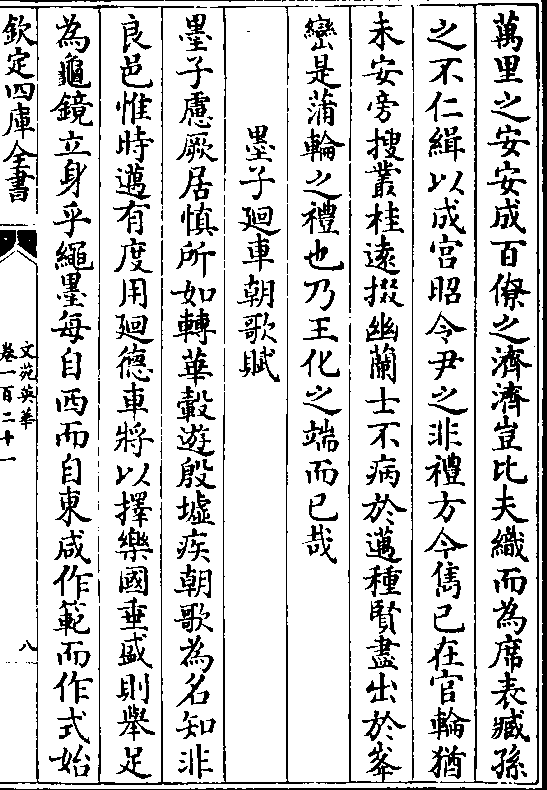 萬里之安安成百僚之濟濟豈比夫織而為席表臧孫
之不仁緝以成宮昭令尹之非禮方今雋已在官輪猶
未安旁搜叢桂遠掇幽蘭士不病於邁種賢盡出於峯
巒是蒲輪之禮也乃王化之端而已哉
墨子廻車朝歌賦
墨子慮厥居慎所如轉華轂遊殷墟疾朝歌為名知非
良邑惟時邁有度用廻德車將以擇樂國垂盛則舉足
為龜鏡立身乎繩墨每自西而自東咸作範而作式始
欽定四庫全書
文苑英華
卷一百二十一
八